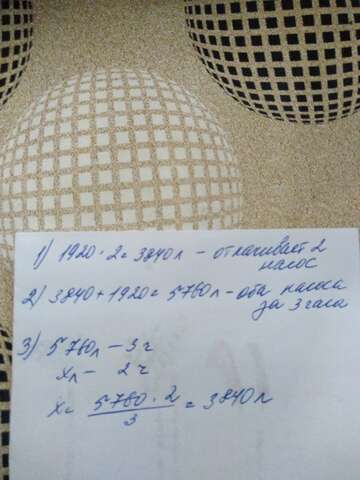 1) 1920 · 2 = 3840 л - откачивает 2
насос
2) 3840 + 1920 = 5760 л - оба насоса
за 3 часа
3) 5760 л - 3 ч
х л - 2 ч
х = 5760 · 2 / 3 = 3840 л